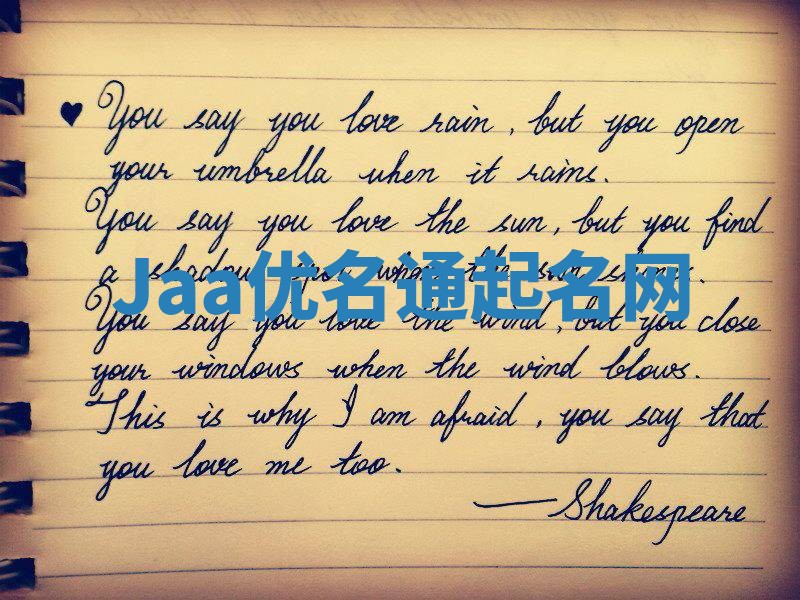 ♥ You say you love rain, but you open
your umbrella when it rains.
You say you love the sun, but you find
a shadow spot when the sun shines.
Jaa优名通起名网
You say you love the wind, but you close
your windows when the wind blows.
This is why I am afraid, you say that
you love me too.
—Shakespeare